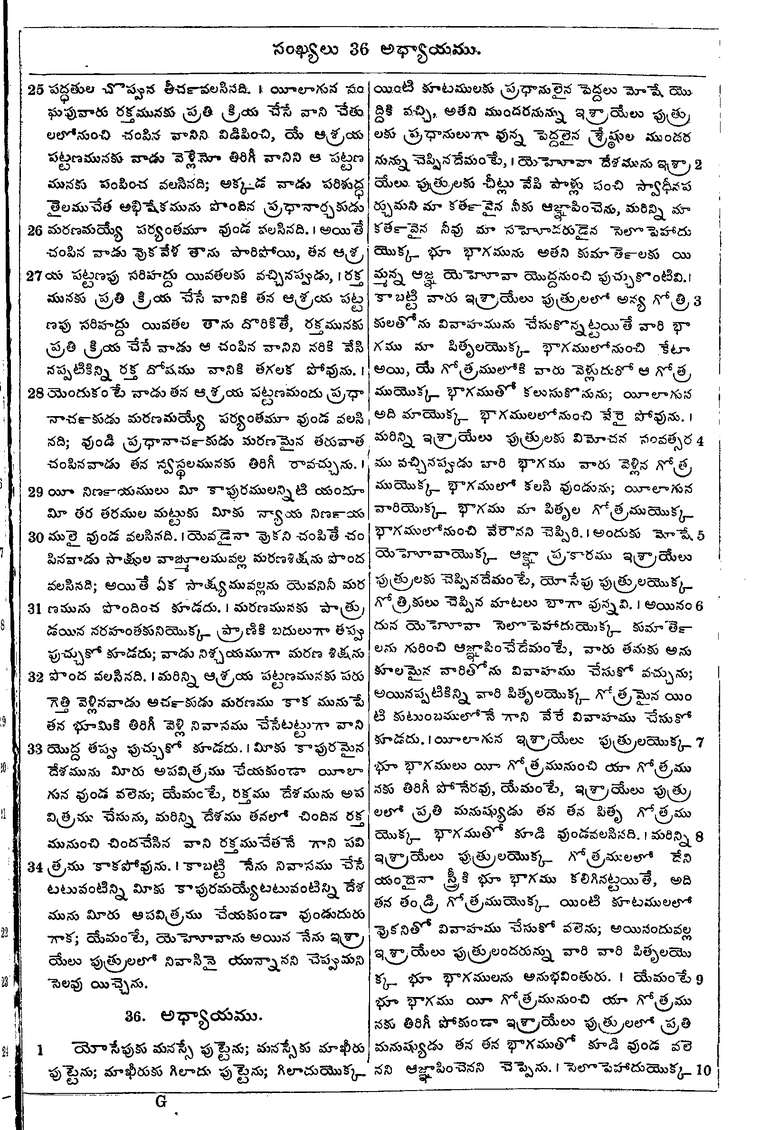 సంఖ్యలు 36 అధ్యాయము.
25 పద్ధతుల చొప్పున తీర్చవలసినది. । యీలాగున సం
ఘపువారు రక్తమునకు ప్రతి క్రియ చేసే వాని చేతు
లలోనుంచి చంపిన వానిని విడిపించి, యే ఆశ్రయ
పట్టణమునకు వాడు వెళ్లెనో తిరిగీ వానిని ఆ పట్టణ
మునకు పంపించ వలసినది; అక్కడ వాడు పరిశుద్ధ
తైలముచేత అభిషేకమును పొందిన ప్రధానార్చకుడు
26 మరణమయ్యే పర్యంతమూ వుండ వలసినది. । అయితే
చంపిన వాడు వొకవేళ తాను పారిపోయి, తన ఆశ్ర
27 య పట్టణపు సరిహద్దు యివతలకు వచ్చినప్పుడు, । రక్త
మునకు ప్రతి క్రియ చేసే వానికి తన ఆశ్రయ పట్ట
ణపు సరిహద్దు యివతల తాను దొరికితే, రక్తమునకు
ప్రతి క్రియ చేసే వాడు ఆ చంపిన వానిని నరికి వేసి
నప్పటికిన్ని రక్త దోషము వానికి తగలక పోవును. ।
28 యెందుకంటే వాడు తన ఆశ్రయ పట్టణమందు ప్రధా
నార్చకుడు మరణమయ్యే పర్యంతమూ వుండ వలసి
నది; వుండి ప్రధానార్చకుడు మరణమైన తరువాత
చంపినవాడు తన స్వస్థలమునకు తిరిగీ రావచ్చును. ।
29 యీ నిర్ణయములు మీ కాపురములన్నిటి యందూ
మీ తర తరముల మట్టుకు మీకు న్యాయ నిర్ణయ
30 ములై వుండ వలసినది. । యెవడైనా వొకని చంపితే చం
పినవాడు సాక్షుల వాఙ్మూలమువల్ల మరణశిక్షను పొంద
వలసినది; అయితే యేక సాక్ష్యమువల్లను యెవనినీ మర
31 ణమును పొందించ కూడదు. । మరణమునకు పాత్రు
డయిన నరహంతకునియొక్క ప్రాణికి బదులుగా తప్పు
పుచ్చుకో కూడదు; వాడు నిశ్చయముగా మరణ శిక్షను
32 పొంద వలసినది. । మరిన్ని ఆశ్రయ పట్టణమునకు పరు
గెత్తి వెళ్లినవాడు అర్చకుడు మరణము కాక మునుపే
తన భూమికి తిరిగీ వెళ్లి నివాసము చేసేటట్టుగా వాని
33 యొద్ద తప్పు పుచ్చుకో కూడదు. । మీకు కాపురమైన
దేశమును మీరు అపవిత్రము చేయకుండా యీలా
గున వుండ వలెను; యేమంటే, రక్తము దేశమును అప
విత్రము చేసును, మరిన్ని దేశము తనలో చిందిన రక్త
మునుంచి చిందచేసిన వాని రక్తముచేతనే గాని పవి
34 త్రము కాకపోవును. । కాబట్టి నేను నివాసము చేసే
టటువంటిన్ని మీకు కాపురమయ్యేటటువంటిన్ని దేశ
మును మీరు అపవిత్రము చేయకుండా వుండుదురు
గాక; యేమంటే, యెహోవాను అయిన నేను ఇశ్రా
యేలు పుత్రులలో నివాసినై యున్నానని చెప్పుమని
సెలవు యిచ్చెను.
36. అధ్యాయము.
1 యోసేపుకు మనస్సే పుట్టెను; మనస్సేకు మాఖీరు
పుట్టెను; మాఖీరుకు గిలాదు పుట్టెను; గిలాదుయొక్క
యింటి కూటములకు ప్రధానులైన పెద్దలు మోషే యొ
ద్దికి వచ్చి, అతని ముందరనున్ను ఇశ్రాయేలు పుత్రు
లకు ప్రధానులుగా వున్న పెద్దలైన శ్రేష్ఠుల ముందర
నున్ను చెప్పినదేమంటే, । యెహోవా దేశమును ఇశ్రా 2
యేలు పుత్రులకు చీట్లు వేసి పాళ్లు పంచి స్వాధీనప
ర్చుమని మా కర్తవైన నీకు ఆజ్ఞాపించెను, మరిన్ని మా
కర్తవైన నీవు మా సహోదరుడైన సెలొపెహాదు
యొక్క భూ భాగమును అతని కుమార్తెలకు యి
మ్మన్న ఆజ్ఞ యెహోవా యొద్దనుంచి పుచ్చుకొంటివి. ।
కాబట్టి వారు ఇశ్రాయేలు పుత్రులలో అన్య గోత్రి 3
కులతోను వివాహమును చేసుకొన్నట్టయితే వారి భా
గము మా పితృలయొక్క భాగములోనుంచి కేటా
అయి, యే గోత్రములోకి వారు వెళ్లుదురో ఆ గోత్ర
ముయొక్క భాగముతో కలుసుకొనును; యీలాగున
అది మాయొక్క భాగములలోనుంచి వేరై పోవును. ।
మరిన్ని ఇశ్రాయేలు పుత్రులకు విమోచన సంవత్సర 4
ము వచ్చినప్పుడు వారి భాగము వారు వెళ్లిన గోత్ర
ముయొక్క భాగములో కలసి వుండును; యీలాగున
వారియొక్క భాగము మా పితృల గోత్రముయొక్క
భాగములోనుంచి వేరౌనని చెప్పిరి. । అందుకు మోషే 5
యెహోవాయొక్క ఆజ్ఞా ప్రకారము ఇశ్రాయేలు
పుత్రులకు చెప్పినదేమంటే, యోసేపు పుత్రులయొక్క
గోత్రికులు చెప్పిన మాటలు బాగా వున్నవి. । అయినం 6
దున యెహోవా సెలొపెహాదుయొక్క కుమార్తె
లను గురించి ఆజ్ఞాపించేదేమంటే, వారు తమకు అను
కూలమైన వారితోను వివాహము చేసుకో వచ్చును;
అయినప్పటికిన్ని వారి పితృలయొక్క గోత్రమైన యిం
టి కుటుంబములోనే గాని వేరే వివాహము చేసుకో
కూడదు. । యీలాగున ఇశ్రాయేలు పుత్రులయొక్క 7
భూ భాగములు యీ గోత్రమునుంచి యా గోత్రము
నకు తిరిగీ పోనేరవు, యేమంటే, ఇశ్రాయేలు పుత్రు
లలో ప్రతి మనుష్యుడు తన తన పితృ గోత్రము
యొక్క భాగముతో కూడి వుండవలసినది. । మరిన్ని 8
ఇశ్రాయేలు పుత్రులయొక్క గోత్రములలో దేని
యందైనా స్త్రీకి భూ భాగము కలిగినట్టయితే, అది
తన తండ్రి గోత్రముయొక్క యింటి కూటములలో
వొకనితో వివాహము చేసుకో వలెను; అయినందువల్ల
ఇశ్రాయేలు పుత్రులందరున్ను వారి వారి పితృలయొ
క్క భూ భాగములను అనుభవింతురు. । యేమంటే 9
భూ భాగము యీ గోత్రమునుంచి యా గోత్రము
నకు తిరిగీ పోకుండా ఇశ్రాయేలు పుత్రులలో ప్రతి
మనుష్యుడు తన తన భాగముతో కూడి వుండ వలె
నని ఆజ్ఞాపించెనని చెప్పెను. । సెలొపెహాదుయొక్క 10
G